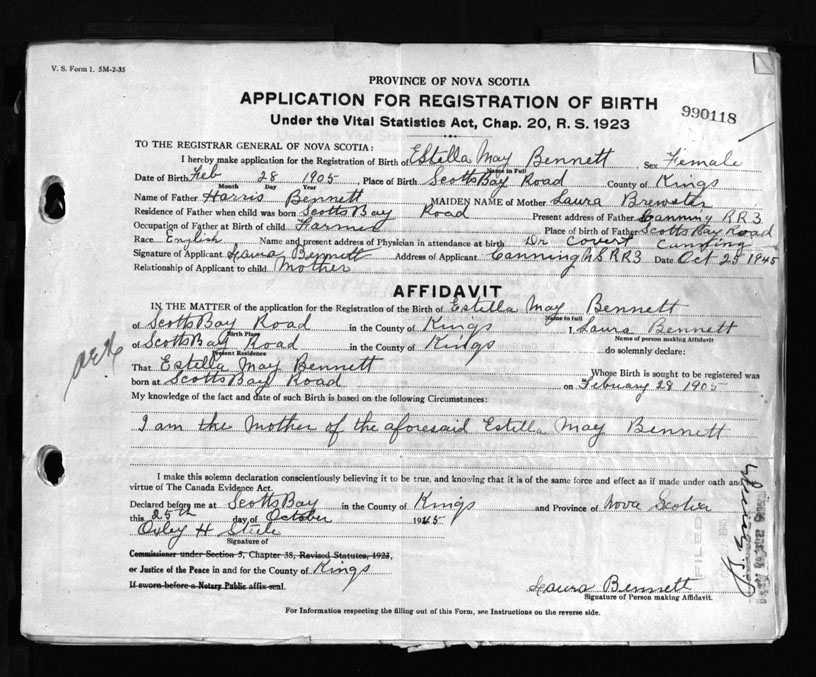 V. S. Form 1. 5M-2-35
PROVINCE OF NOVA SCOTIA
APPLICATION FOR REGISTRATION OF BIRTH
990118
Under the Vital Statistics Act, Chap. 20, R. S. 1923
TO THE REGISTRAR GENERAL OF NOVA SCOTIA:
I hereby make application for the Registration of Birth of Estella May Bennett Sex Female
Name in Full
Date of Birth Feb 28 1905, Place of Birth Scotts Bay Road County of Kings
Month Day Year
Name of Father Harris Bennett MAIDEN NAME of Mother Laura Brewster
Residence of Father when child was born Scotts Bay Road Present address of Father Canning RR3
Occupation of Father at Birth of child Farmer Place of birth of Father Scotts Bay Road
Race English Name and present address of Physician in attendance at birth Dr Covert Canning
Signature of Applicant Laura Bennett Address of Applicant Canning NS RR3 Date Oct 25 1945
Relationship of Applicant to child Mother
AFFIDAVIT
IN THE MATTER of the application for the Registration of the Birth of Estella May Bennett
Name in full
of Scotts Bay Road in the County of Kings I, Laura Bennett
Birth Place Name of person making Affidavit
of Scotts Bay Road in the County of Kings do solemnly declare:
Present Residence
That Estella May Bennett Whose Birth is sought to be registered was
born at Scotts Bay Road on February 28 1905
My knowledge of the fact and date of such Birth is based on the following Circumstances:
I am the Mother of the aforesaid Estella May Bennett
I make this solemn declaration conscientiously believing it to be true, and knowing that it is of the same force and effect as if made under oath and
virtue of The Canada Evidence Act.
Declared before me at Scotts Bay in the County of Kings and Province of Nova Scotia
this 25th day of October 1945
Oxley H Steele
Signature of
Commissioner under Section 5, Chapter 38, Revised Statutes, 1923,
or Justice of the Peace in and for the County of Kings
If sworn before a Notary Public affix seal.
Laura Bennett
Signature of Person making Affidavit.
For Information respecting the filling out of this Form, see Instructions on the reverse side.
FILED